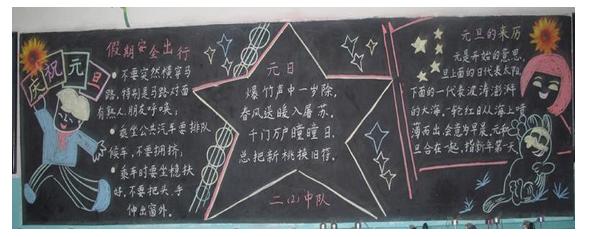 庆祝元旦
假期安全出行
●不要突然横穿马
路,特别是马路对面
有熟人、朋友呼唤;
●乘坐公共汽车要排队
候车,不要拥挤;
●乘车时要坐稳扶
好,不要把头、手
伸出窗外。
元日
爆竹声中一岁除,
春风送暖入屠苏。
千门万户曈曈日,
总把新桃换旧符。
二(2)中队
元旦的来历
元是开始的意思,
旦上面的日代表太阳,
下面的一代表波涛澎湃
的大海。一轮红日从海上喷
薄而出会意为早晨。元和
旦合在一起,指新年第一天